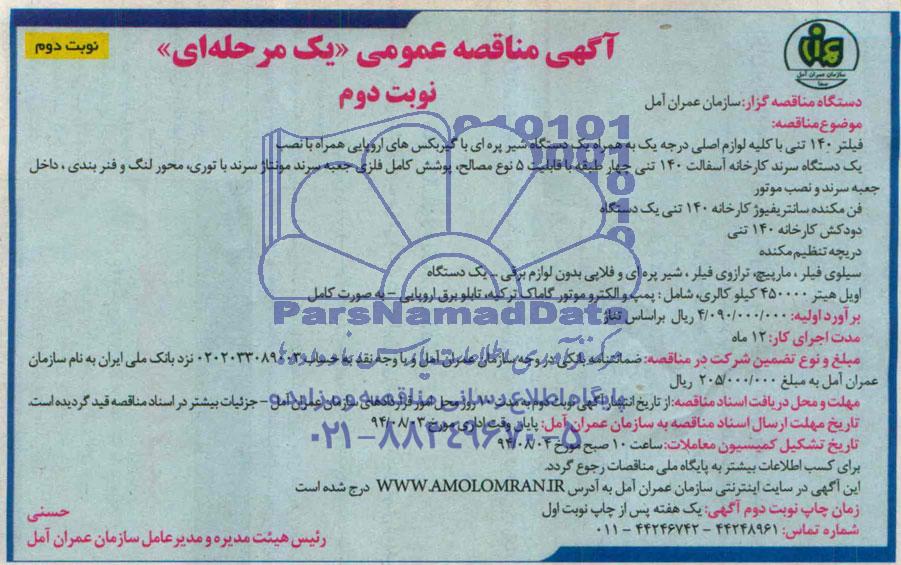 سازمان عمران آمل
آگهی مناقصه عمومی «یک مرحله‌ای»
نوبت دوم
نوبت دوم
دستگاه مناقصه گزار: سازمان عمران آمل
موضوع مناقصه:
فیلتر ۱۴۰ تنی با کلیه لوازم اصلی درجه یک به همراه یک دستگاه شیر پره ای با گیربکس های اروپایی همراه با نصب
یک دستگاه سرند کارخانه آسفالت ۱۴۰ تنی چهار طبقه با قابلیت ۵ نوع مصالح، پوشش کامل فلزی جعبه سرند مونتاژ سرند با توری، محور لنگ و فنر بندی ، داخل
جعبه سرند و نصب موتور
فن مکنده سانتریفیوژ کارخانه ۱۴۰ تنی یک دستگاه
دودکش کارخانه ۱۴۰ تنی
دریچه تنظیم مکنده
سیلوی فیلر ، مارپیچ، ترازوی فیلر ، شیر پره ای و فلاپی بدون لوازم برقی – یک دستگاه
اویل هیتر ۴۵۰۰۰۰ کیلو کالری، شامل : پمپ و الکترو موتور گاماک ترکیه، تابلو برق اروپایی – به صورت کامل
برآورد اولیه: ۴/۰۹۰/۰۰۰/۰۰۰ ریال براساس تناژ
مدت اجرای کار: ۱۲ ماه
مبلغ و نوع تضمین شرکت در مناقصه: ضمانتنامه بانکی در وجه سازمان عمران آمل و یا وجه نقد به حساب نزد بانک ملی ایران به نام سازمان
عمران آمل به مبلغ ۲۰۵/۰۰۰/۰۰۰ ریال
مهلت و محل دریافت اسناد مناقصه: از تاریخ انتشار آگهی نوبت دوم به مدت روز محل امور قراردادهای سازمان عمران آمل – جزئیات بیشتر در اسناد مناقصه قید گردیده است.
تاریخ مهلت ارسال اسناد مناقصه به سازمان عمران آمل: پایان وقت اداری مورخ ۹۴/۰۸/۰۳
تاریخ تشکیل کمیسیون معاملات: ساعت ۱۰ صبح مورخ ۹۴/۰۸/۰۴
برای کسب اطلاعات بیشتر به پایگاه ملی مناقصات رجوع گردد.
این آگهی در سایت اینترنتی سازمان عمران آمل به آدرس WWW.AMOLOMRAN.IR درج شده است
زمان چاپ نوبت دوم آگهی: یک هفته پس از چاپ نوبت اول
شماره تماس: ۴۴۲۴۸۹۶۱ – ۴۴۲۴۶۷۴۲ – ۰۱۱
حسنی
رئیس هیئت مدیره و مدیر عامل سازمان عمران آمل
ParsNamadData
پایگاه اطلاع رسانی مناقصه و مزایده
۰۲۱-۸۸۳۴۹۶۷۰-۵